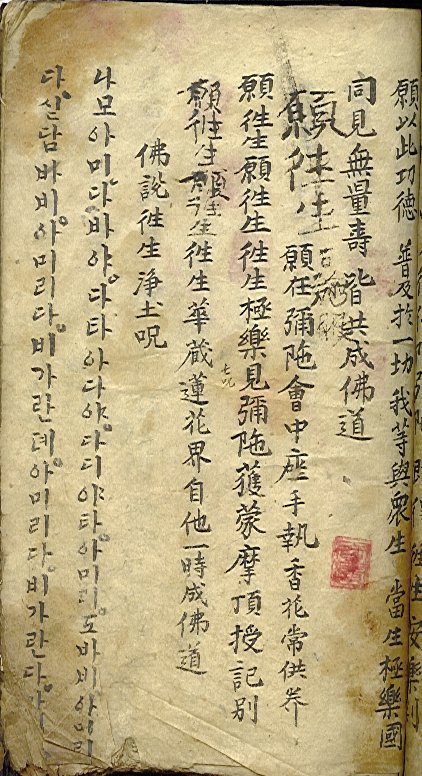 願以此功德 普及於一切 我等與衆生 當生極樂國
同見無量壽 皆共成佛道
願徃生
願在彌陁會中座手執香花常供养
願徃生願徃生徃生極樂見彌陁獲蒙摩頂授記别
願徃生願徃生徃生華蔵蓮花界自他一時成佛道
佛說徃生淨土呪
나모아미다바야。다타아다야。다디야타。아미리도바비아미리
다。싣담바비。아미리다。비가란뎨。아미리다。비가란다。